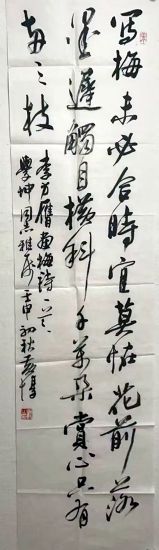 寫梅未必合時宜莫怪花前落
墨遲觸目橫斜千萬朵賞心只有
兩三枝
李方膺画梅詩一首
學坤同志雅屬壬申初秋